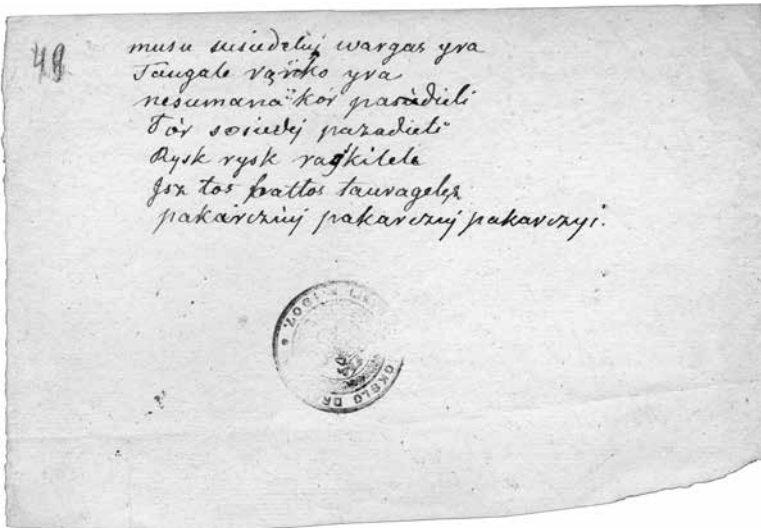 49
musu susiedeluj wargas yra
Taugale rąnko yra
nesumana kór pasidieti
Tór sosiedej pazadieti
Rysk rysk ragkilele
Jsz tos baltos tauragelęs
pakarcziuj pakarczuj pakarczyi.